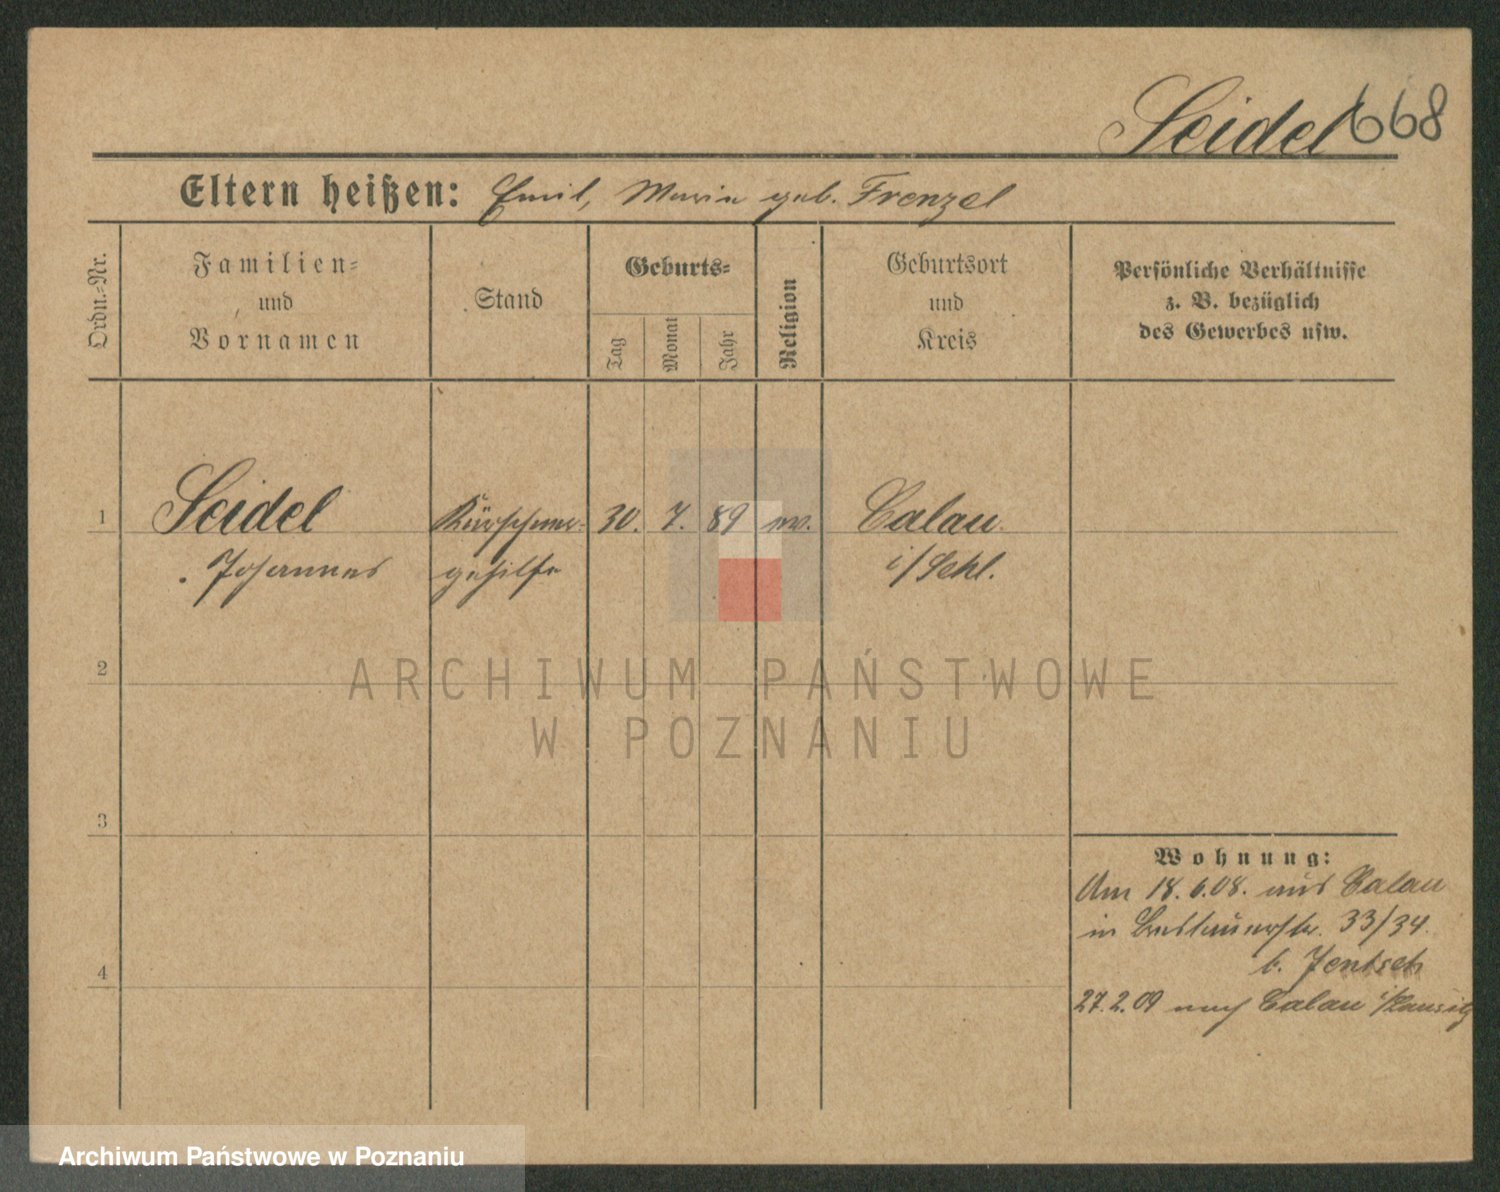 Seidel 668
Eltern heißen: Emil, Maria geb. Frenzel
Ordn.-Nr.
Familien-
und
Vornamen
Stand
Geburts-
Tag
Monat
Jahr
Religion
Geburtsort
und
Kreis
Persönliche Verhältnisse
z. B. bezüglich
des Gewerbes usw.
1 Seidel Kürschner- 30. 7. 89 ev. Calau
Johannes gehilfe i/Schl.
2
3
4
Wohnung:
Am 18.6.08. aus Calau
in Breslauerstr. 33/34.
b. Jentsch
27.2.09 nach Calau i/Lausitz
ARCHIWUM PAŃSTWOWE
W POZNANIU
Archiwum Państwowe w Poznaniu